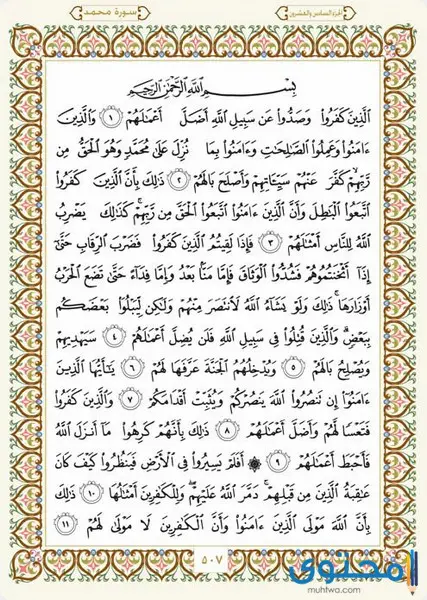 الجزء السادس والعشرون
سورة محمد
بِسْمِ اللَّهِ الرَّحْمَٰنِ الرَّحِيمِ
الَّذِينَ كَفَرُوا وَصَدُّوا عَن سَبِيلِ اللَّهِ أَضَلَّ أَعْمَٰلَهُمْ ١ وَالَّذِينَ
ءَامَنُوا وَعَمِلُوا الصَّٰلِحَٰتِ وَءَامَنُوا بِمَا نُزِّلَ عَلَىٰ مُحَمَّدٍ وَهُوَ الْحَقُّ مِن
رَّبِّهِمْ كَفَّرَ عَنْهُمْ سَيِّـَٔاتِهِمْ وَأَصْلَحَ بَالَهُمْ ٢ ذَٰلِكَ بِأَنَّ الَّذِينَ كَفَرُوا
اتَّبَعُوا الْبَٰطِلَ وَأَنَّ الَّذِينَ ءَامَنُوا اتَّبَعُوا الْحَقَّ مِن رَّبِّهِمْ كَذَٰلِكَ يَضْرِبُ
اللَّهُ لِلنَّاسِ أَمْثَٰلَهُمْ ٣ فَإِذَا لَقِيتُمُ الَّذِينَ كَفَرُوا فَضَرْبَ الرِّقَابِ حَتَّىٰ
إِذَا أَثْخَنتُمُوهُمْ فَشُدُّوا الْوَثَاقَ فَإِمَّا مَنًّا بَعْدُ وَإِمَّا فِدَاءً حَتَّىٰ تَضَعَ الْحَرْبُ
أَوْزَارَهَا ذَٰلِكَ وَلَوْ يَشَاءُ اللَّهُ لَانتَصَرَ مِنْهُمْ وَلَٰكِن لِّيَبْلُوَا بَعْضَكُم
بِبَعْضٍ وَالَّذِينَ قُتِلُوا فِي سَبِيلِ اللَّهِ فَلَن يُضِلَّ أَعْمَٰلَهُمْ ٤ سَيَهْدِيهِمْ
وَيُصْلِحُ بَالَهُمْ ٥ وَيُدْخِلُهُمُ الْجَنَّةَ عَرَّفَهَا لَهُمْ ٦ يَٰأَيُّهَا الَّذِينَ
ءَامَنُوا إِن تَنصُرُوا اللَّهَ يَنصُرْكُمْ وَيُثَبِّتْ أَقْدَامَكُمْ ٧ وَالَّذِينَ كَفَرُوا
فَتَعْسًا لَّهُمْ وَأَضَلَّ أَعْمَٰلَهُمْ ٨ ذَٰلِكَ بِأَنَّهُمْ كَرِهُوا مَا أَنزَلَ اللَّهُ
فَأَحْبَطَ أَعْمَٰلَهُمْ ٩ ۞ أَفَلَمْ يَسِيرُوا فِي الْأَرْضِ فَيَنظُرُوا كَيْفَ كَانَ
عَٰقِبَةُ الَّذِينَ مِن قَبْلِهِمْ دَمَّرَ اللَّهُ عَلَيْهِمْ وَلِلْكَٰفِرِينَ أَمْثَٰلُهَا ١٠ ذَٰلِكَ
بِأَنَّ اللَّهَ مَوْلَى الَّذِينَ ءَامَنُوا وَأَنَّ الْكَٰفِرِينَ لَا مَوْلَىٰ لَهُمْ ١١
٥٠٧
محتوى
muhtwa.com